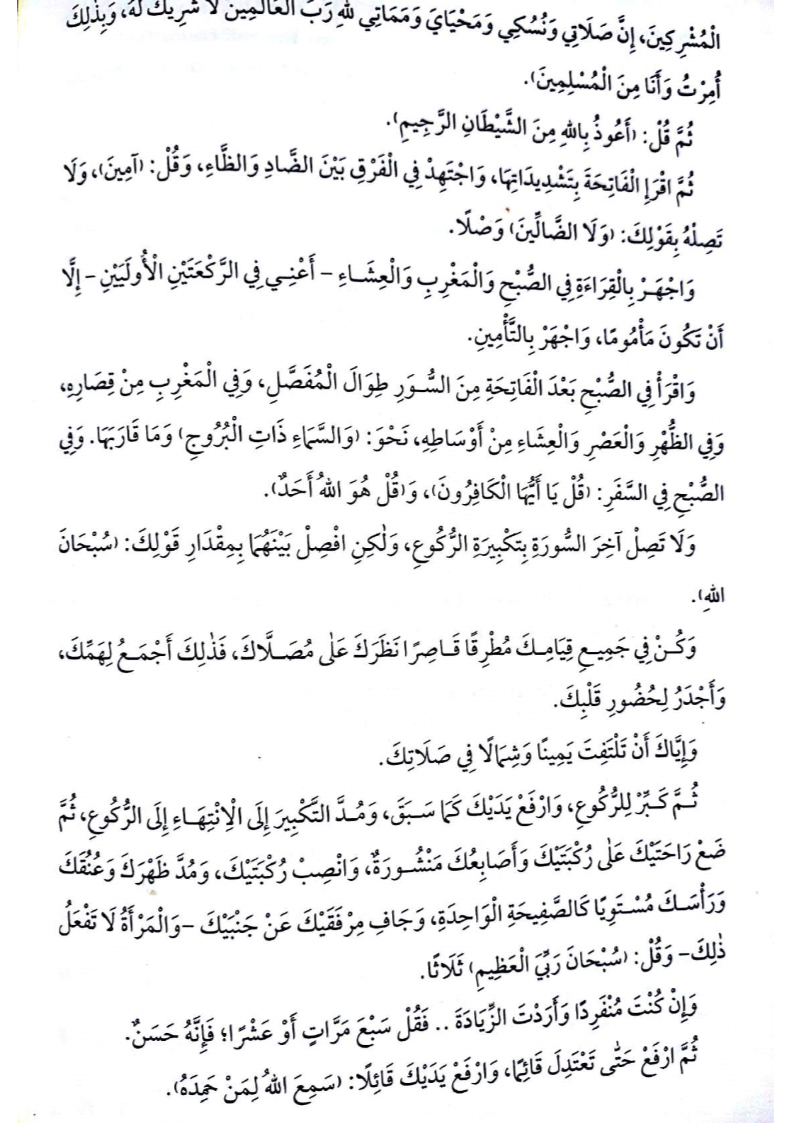 الْمُشْرِكِينَ، إِنَّ صَلَاتِي وَنُسُكِي وَمَحْيَايَ وَمَمَاتِي لِلّٰهِ رَبِّ الْعَالَمِينَ لَا شَرِيكَ لَهُ، وَبِذٰلِكَ
أُمِرْتُ وَأَنَا مِنَ الْمُسْلِمِينَ).
ثُمَّ قُلْ: (أَعُوذُ بِاللهِ مِنَ الشَّيْطَانِ الرَّجِيمِ).
ثُمَّ اقْرَإِ الْفَاتِحَةَ بِتَشْدِيدَاتِهَا، وَاجْتَهِدْ فِي الْفَرْقِ بَيْنَ الضَّادِ وَالظَّاءِ، وَقُلْ: (آمِينَ)، وَلَا
تَصِلْهُ بِقَوْلِكَ: (وَلَا الضَّالِّينَ) وَصْلًا.
وَاجْهَرْ بِالْقِرَاءَةِ فِي الصُّبْحِ وَالْمَغْرِبِ وَالْعِشَاءِ – أَعْنِي فِي الرَّكْعَتَيْنِ الْأُولَيَيْنِ – إِلَّا
أَنْ تَكُونَ مَأْمُومًا، وَاجْهَرْ بِالتَّأْمِينِ.
وَاقْرَأْ فِي الصُّبْحِ بَعْدَ الْفَاتِحَةِ مِنَ السُّوَرِ طِوَالَ الْمُفَصَّلِ، وَفِي الْمَغْرِبِ مِنْ قِصَارِهِ،
وَفِي الظُّهْرِ وَالْعَصْرِ وَالْعِشَاءِ مِنْ أَوْسَاطِهِ، نَحْوَ: (وَالسَّمَاءِ ذَاتِ الْبُرُوجِ) وَمَا قَارَبَهَا. وَفِي
الصُّبْحِ فِي السَّفَرِ: (قُلْ يَا أَيُّهَا الْكَافِرُونَ)، وَ(قُلْ هُوَ اللهُ أَحَدٌ).
وَلَا تَصِلْ آخِرَ السُّورَةِ بِتَكْبِيرَةِ الرُّكُوعِ، وَلٰكِنِ افْصِلْ بَيْنَهُمَا بِمِقْدَارِ قَوْلِكَ: (سُبْحَانَ
اللهِ).
وَكُنْ فِي جَمِيعِ قِيَامِكَ مُطْرِقًا قَاصِرًا نَظَرَكَ عَلٰى مُصَلَّاكَ، فَذٰلِكَ أَجْمَعُ لِهَمِّكَ،
وَأَجْدَرُ لِحُضُورِ قَلْبِكَ.
وَإِيَّاكَ أَنْ تَلْتَفِتَ يَمِينًا وَشِمَالًا فِي صَلَاتِكَ.
ثُمَّ كَبِّرْ لِلرُّكُوعِ، وَارْفَعْ يَدَيْكَ كَمَا سَبَقَ، وَمُدَّ التَّكْبِيرَ إِلَى الْاِنْتِهَاءِ إِلَى الرُّكُوعِ، ثُمَّ
ضَعْ رَاحَتَيْكَ عَلٰى رُكْبَتَيْكَ وَأَصَابِعُكَ مَنْشُورَةٌ، وَانْصِبْ رُكْبَتَيْكَ، وَمُدَّ ظَهْرَكَ وَعُنُقَكَ
وَرَأْسَكَ مُسْتَوِيًا كَالصَّفِيحَةِ الْوَاحِدَةِ، وَجَافِ مِرْفَقَيْكَ عَنْ جَنْبَيْكَ –وَالْمَرْأَةُ لَا تَفْعَلُ
ذٰلِكَ– وَقُلْ: (سُبْحَانَ رَبِّيَ الْعَظِيمِ) ثَلَاثًا.
وَإِنْ كُنْتَ مُنْفَرِدًا وَأَرَدْتَ الزِّيَادَةَ .. فَقُلْ سَبْعَ مَرَّاتٍ أَوْ عَشْرًا؛ فَإِنَّهُ حَسَنٌ.
ثُمَّ ارْفَعْ حَتّٰى تَعْتَدِلَ قَائِمًا، وَارْفَعْ يَدَيْكَ قَائِلًا: (سَمِعَ اللهُ لِمَنْ حَمِدَهُ).